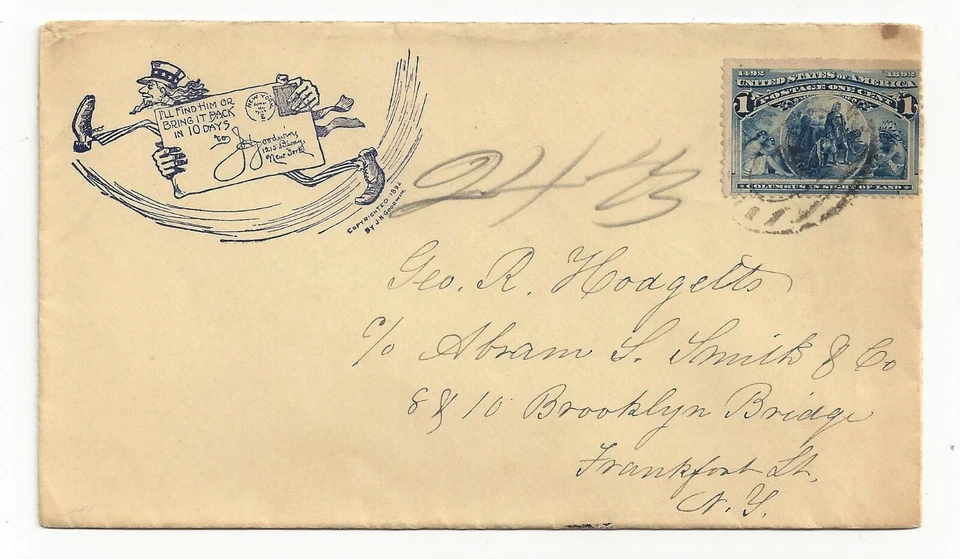 I'LL FIND HIM OR
BRING IT BACK
IN 10 DAYS
TO
J H Goodwin,
1215 B'dway,
New York
NEW YORK
COPYRIGHTED 1892
BY J.H. GOODWIN.
1492 1892
UNITED STATES OF AMERICA
POSTAGE ONE CENT
1 1
COLUMBUS IN SIGHT OF LAND
Geo. R. Hodgetts
c/o Abram S. Smith & Co
8 & 10 Brooklyn Bridge
Frankfort St.
N. Y.